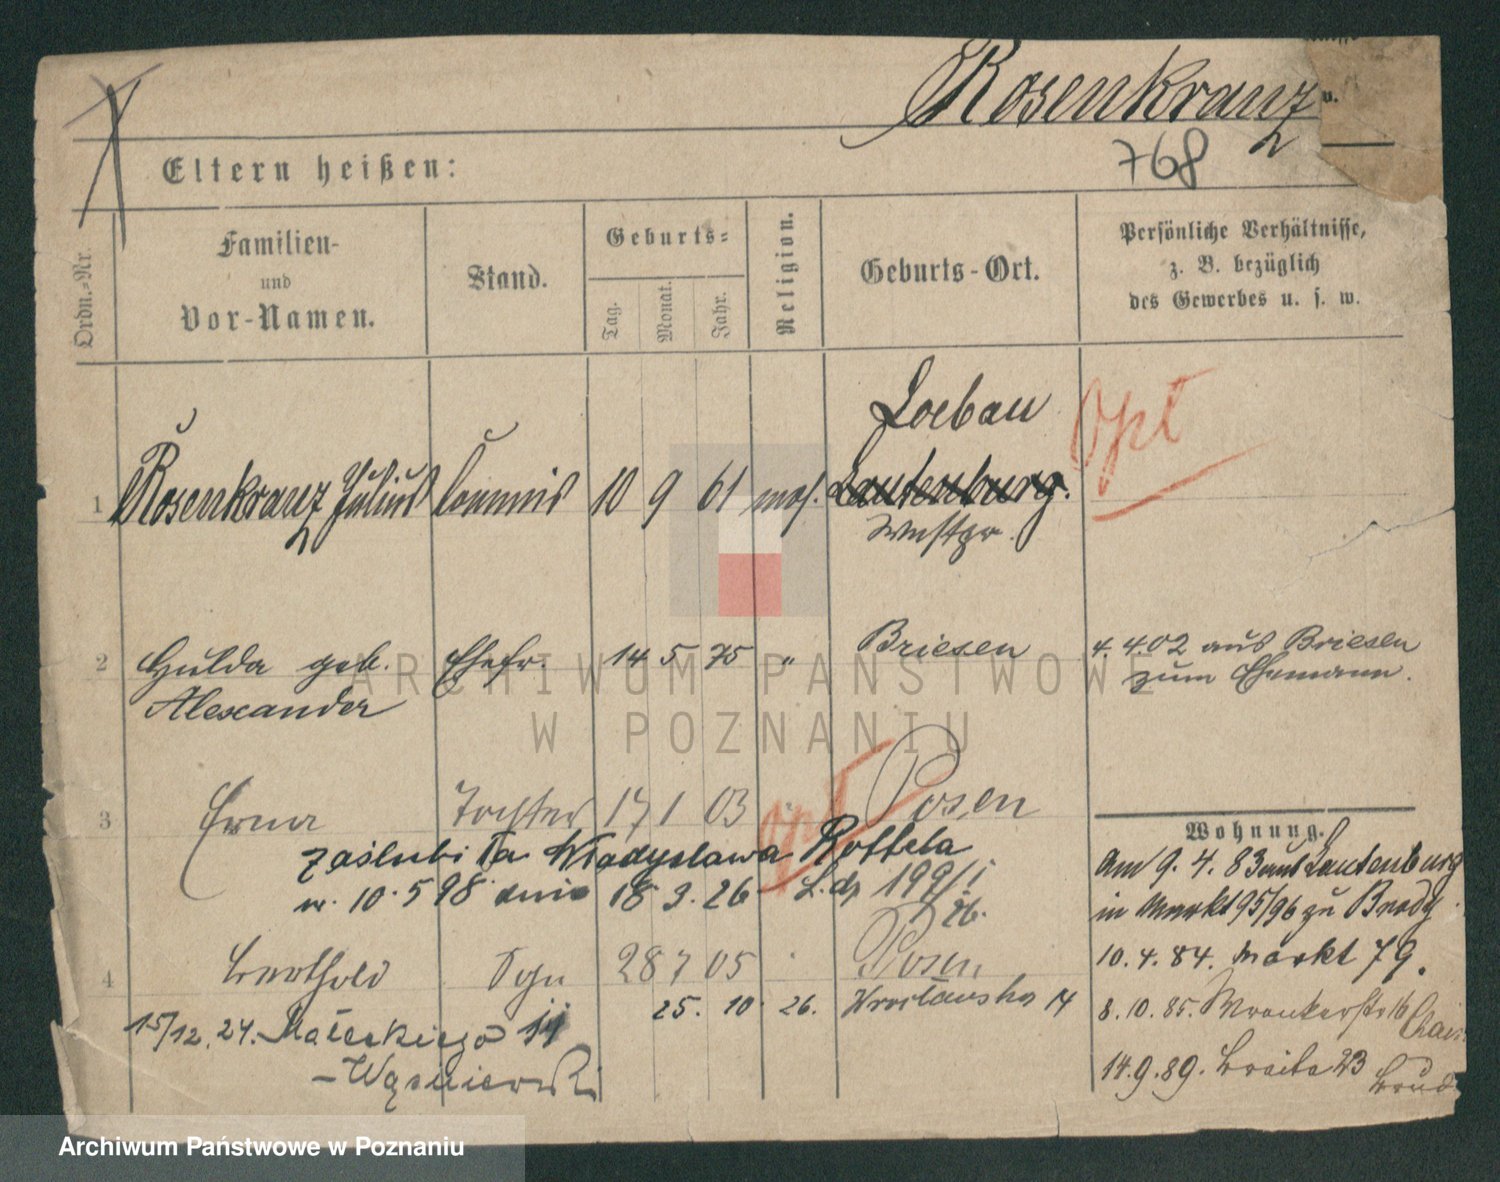 Rosenkranz
768
Eltern heißen:
Ordn.-Nr.
Familien-
und
Vor-Namen.
Stand.
Geburts-
Tag.
Monat.
Jahr.
Religion.
Geburts-Ort.
Persönliche Verhältnisse,
z. B. bezüglich
des Gewerbes u. s. w.
Loebau
opt
1 Rosenkranz Julius Commis 10 9 61 mos. Lautenburg.
Westpr.
2 Hulda geb. Ehefr. 14 5 75 " Briesen 4.4.02 aus Briesen
Alexander zum Ehemann.
opt
3 Erna Tochter 17 1 03 Posen
zaślubiła Władysława Rottela
w. 10.5 98 dnia 18 3. 26 L.dz 199/I
26.
4 Berthold Syn 28 7 05 Posen
25. 10 26. Wrocławska 14
15/12. 24. Małeckiego 11
Wohnung.
Am 9. 4. 83 aus Lautenburg
in Markt 95/96 zu Brody
10. 4. 84. Markt 79.
8. 10. 85. Wronkerstr 16
14. 9. 89. Breite 23
ARCHIWUM PAŃSTWOWE
W POZNANIU
Archiwum Państwowe w Poznaniu